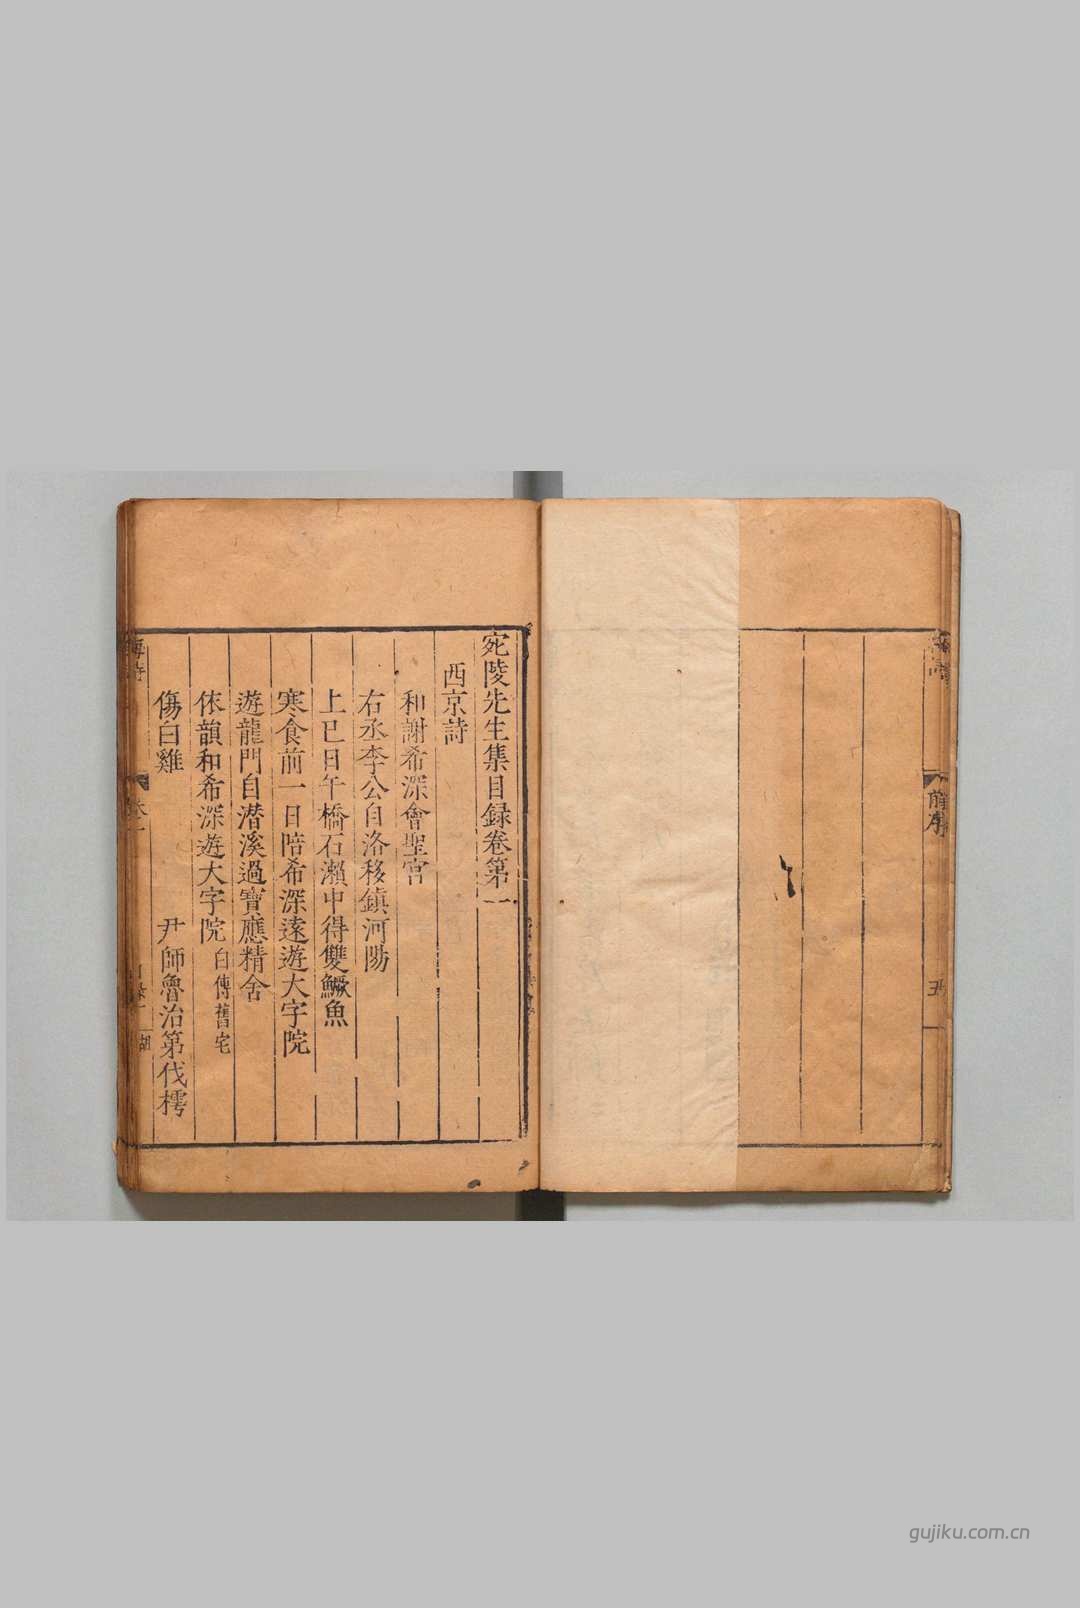 前序
五
宛陵先生集目録卷第一
西京詩
和謝希深會聖宮
右丞李公自洛移鎮河陽
上巳日午橋石瀨中得雙鱖魚
寒食前一日陪希深遠遊大字院
遊龍門自潛溪過寶應精舍
依韻和希深遊大字院 白傅舊宅
傷白雞 尹師魯治第伐樗
gujiku.com.cn